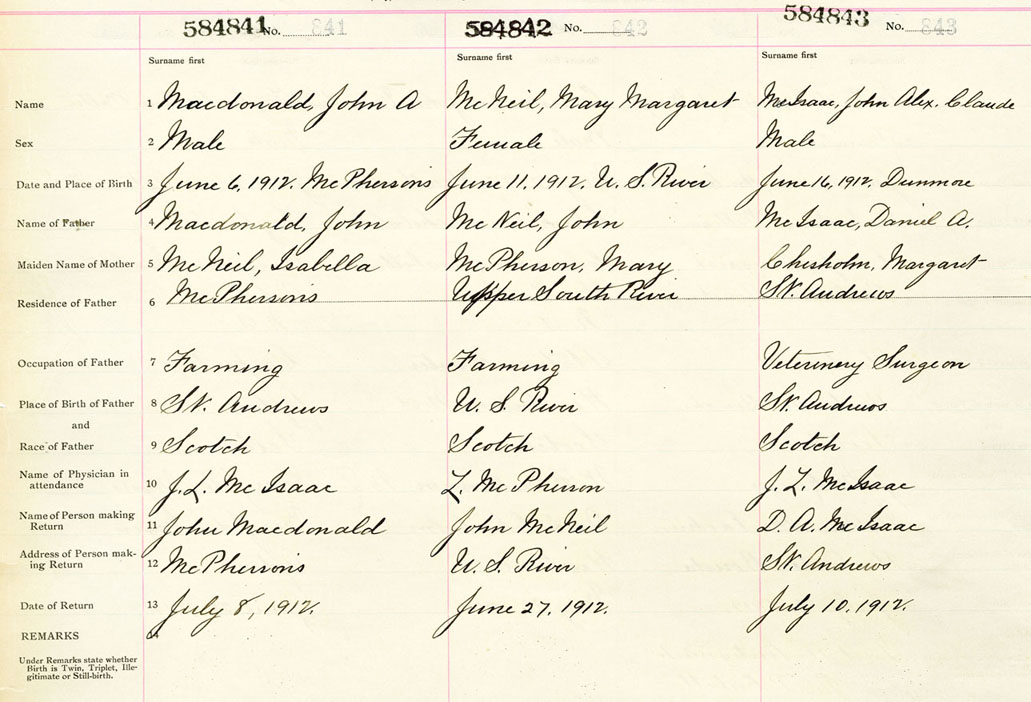 584841 No. 841 584842 No. 842 584843 No. 843
Surname first Surname first Surname first
Name 1 Macdonald, John A McNeil, Mary Margaret McIsaac, John Alex. Claude
Sex 2 Male Female Male
Date and Place of Birth 3 June 6, 1912. McPhersons June 11, 1912. U. S. River June 16, 1912. Dunmore
Name of Father 4 Macdonald, John McNeil, John McIsaac, Daniel A.
Maiden Name of Mother 5 McNeil, Isabella McPherson, Mary Chisholm, Margaret
Residence of Father 6 McPhersons Upper South River St. Andrews
Occupation of Father 7 Farming Farming Veterinery Surgeon
Place of Birth of Father 8 St. Andrews U. S. River St. Andrews
and
Race of Father 9 Scotch Scotch Scotch
Name of Physician in
attendance 10 J. L. McIsaac L. McPherson J. L. McIsaac
Name of Person making
Return 11 John Macdonald John McNeil D. A. McIsaac
Address of Person mak-
ing Return 12 McPhersons U. S. River St. Andrews
Date of Return 13 July 8, 1912. June 27, 1912. July 10, 1912.
REMARKS
Under Remarks state whether
Birth is Twin, Triplet, Ille-
gitimate or Still-birth.